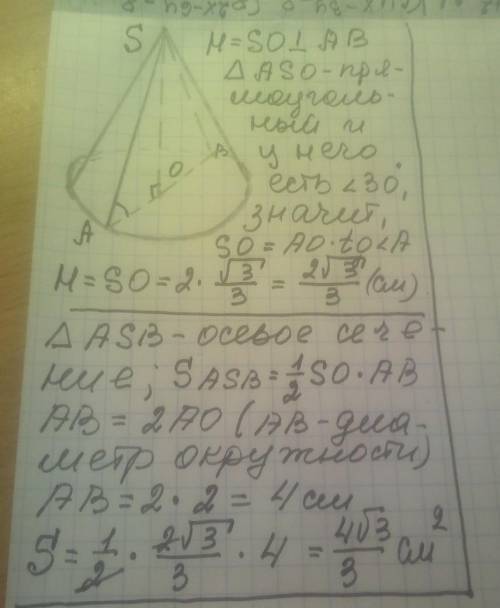 S
H = SO ⊥ AB
Δ ASO - пря-
моуголь-
ный и
у него
есть < 30,
значит,
O
B
A
SO = AO · tg < A
H = SO = 2 · √3/3 = 2√3/3 (см)
Δ ASB - осевое сече-
ние; S ASB = 1/2 SO · AB
AB = 2AO (AB - диа-
метр окружности)
AB = 2 · 2 = 4 см
S = 1/2 · 2√3/3 · 4 = 4√3/3 см²